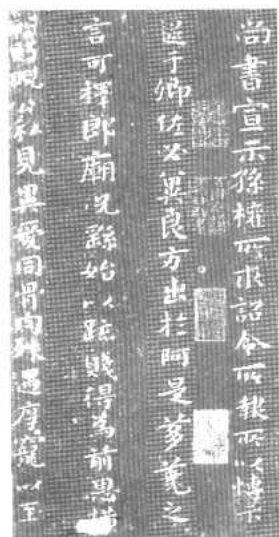 尚書宣示孫權所求詔令所報所以博示
逮于卿佐必冀良方出於阿是芻蕘之
言可擇郎廟況繇始以疏賤得為前恩橫
所盱睨公私見異愛同骨肉殊遇厚寵以至